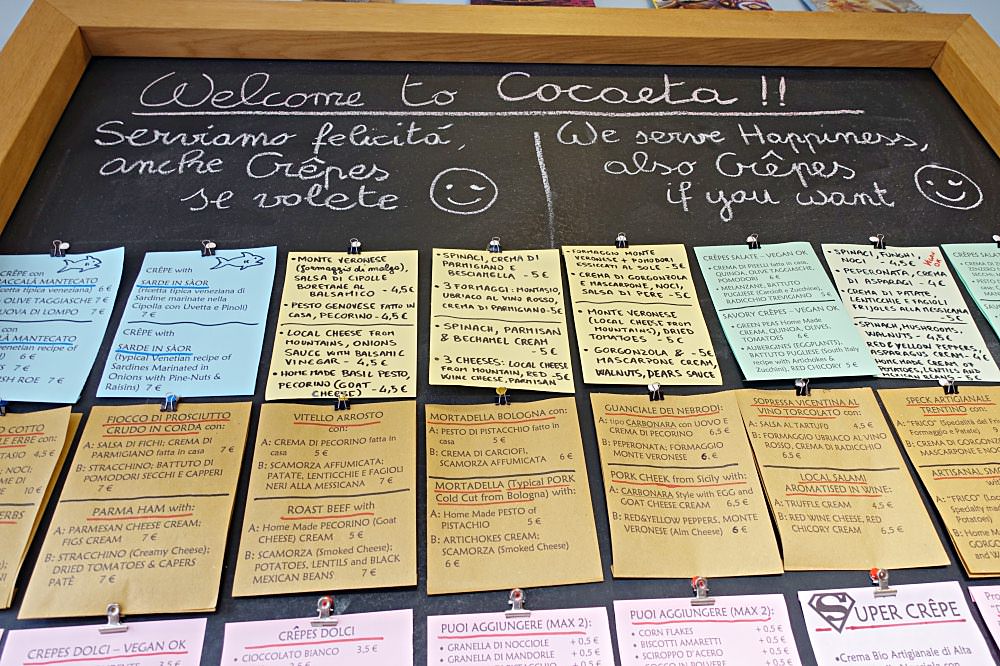 Welcome to Cocaeta !!
Serviamo felicitá,
anche Crêpes
se volete
We serve Happiness,
also Crêpes
if you want
CRÊPE con
BACCALÀ MANTECATO
(ricetta tipica veneziana) 6 €
OLIVE TAGGIASCHE 7 €
UOVA DI LOMPO 7 €
MANTECATO
recipe of
6 €
7 €
ROE 7 €
CRÊPE with
SARDE IN SÀOR
(ricetta tipica veneziana di
Sardine marinate nella
Cipolla con Uvetta e Pinoli)
7 €
CRÊPE with
SARDE IN SÀOR
(typical Venetian recipe of
Sardines Marinated in
Onions with Pine-Nuts &
Raisins) 7 €
• MONTE VERONESE
(formaggio di malga),
SALSA DI CIPOLLE
BORETANE AL
BALSAMICO - 4,5€
• PESTO GENOVESE FATTO IN
CASA, PECORINO - 4,5€
• LOCAL CHEESE FROM
MOUNTAINS, ONIONS
SAUCE WITH BALSAMIC
VINEGAR - 4,5 €
• HOME MADE BASIL PESTO,
PECORINO (GOAT
CHEESE) - 4,5€
• SPINACI, CREMA DI
PARMIGIANO E
BESCIAMELLA - 5€
• 3 FORMAGGI: MONTASIO,
UBRIACO AL VINO ROSSO,
CREMA DI PARMIGIANO - 5€
• SPINACH, PARMISAN
& BECHAMEL CREAM
- 5€
• 3 CHEESES: LOCAL CHEESE
FROM MOUNTAIN, RED - 5€
WINE CHEESE, PARMISAN
• FORMAGGIO MONTE
VERONESE + POMODORI
ESSICCATI AL SOLE - 5€
• CREMA DI GORGONZOLA
E MASCARPONE, NOCI,
SALSA DI PERE - 5€
• MONTE VERONESE
(LOCAL CHEESE FROM
MOUNTAINS), DRIED
TOMATOES - 5€
• GORGONZOLA & - 5€
MASCARPONE CREAM,
WALNUTS, PEARS SAUCE
CRÊPES SALATE - VEGAN OK
• CREMA DI PISELLI fatta in casa,
QUINOA, OLIVE TAGGIASCHE,
ZUCCHINE 7 €
• MELANZANE, BATTUTO
PUGLIESE (Carciofi e Zucchine),
RADICCHIO TREVIGIANO 5 €
SAVORY CRÊPES - VEGAN OK
• GREEN PEAS Home Made
CREAM, QUINOA, OLIVES,
ZUCCHINI 7 €
• AUBERGINES (EGGPLANTS),
BATTUTO PUGLIESE (South Italy
Recipe with Artichokes &
Zucchini), RED CHICORY 5 €
• SPINACI, FUNGHI
NOCI - 5€
• PEPERONATA, CREMA
DI ASPARAGI - 4€
• CREMA DI PATATE,
LENTICCHIE E FAGIOLI
NERI ALLA MESSICANA - 5€
• SPINACH, MUSHROOMS,
WALNUTS - 5€
• RED & YELLOW PEPPERS,
ASPARAGUS CREAM - 4€
• HOME MADE CREAM OF
POTATOES, LENTILS AND
MEXICAN BEANS 5€
COTTO
ERBE con:
4,5 €
NOCI;
10 €
FIOCCO DI PROSCIUTTO
CRUDO IN CORDA con:
A: SALSA DI FICHI; CREMA DI
PARMIGIANO fatta in casa 7 €
B: STRACCHINO; BATTUTO DI
POMODORI SECCHI E CAPPERI
7 €
PARMA HAM with:
A: PARMESAN CHEESE CREAM;
FIGS CREAM 7 €
B: STRACCHINO (Creamy Cheese);
DRIED TOMATOES & CAPERS
PATÈ 7 €
VITELLO ARROSTO
con:
A: CREMA DI PECORINO fatta in
casa 5 €
B: SCAMORZA AFFUMICATA;
PATATE, LENTICCHIE E FAGIOLI
NERI ALLA MESSICANA 7 €
ROAST BEEF with
A: Home Made PECORINO (Goat
CHEESE) CREAM 5 €
B: SCAMORZA (Smoked Cheese);
POTATOES, LENTILS and BLACK
MEXICAN BEANS 7 €
MORTADELLA BOLOGNA con:
A: PESTO DI PISTACCHIO fatto in
casa 5 €
B: CREMA DI CARCIOFI,
SCAMORZA AFFUMICATA 6 €
MORTADELLA (Typical PORK
Cold Cut from Bologna) with:
A: Home Made PESTO of
PISTACHIO 5 €
B: ARTICHOKES CREAM;
SCAMORZA (Smoked Cheese)
6 €
GUANCIALE DEI NEBRODI con:
A: tipo CARBONARA con UOVO E
CREMA DI PECORINO 6,5 €
B: PEPERONATA; FORMAGGIO
MONTE VERONESE 6 €
PORK CHEEK from Sicily with:
A: CARBONARA Style with EGG and
GOAT CHEESE CREAM 6,5 €
B: RED&YELLOW PEPPERS, MONTE
VERONESE (Alm Cheese) 6 €
SOPRESSA VICENTINA AL
VINO TORCOLATO con:
A: SALSA AL TARTUFO 4,5 €
B: FORMAGGIO UBRIACO AL VINO
ROSSO, CREMA DI RADICCHIO
6,5 €
LOCAL SALAMI
AROMATISED IN WINE:
A: TRUFFLE CREAM 4,5 €
B: RED WINE CHEESE, RED
CHICORY CREAM 6,5 €
SPECK ARTIGIANALE
TRENTINO con:
A: "FRICO" (Specialità con
Formaggio e Patate)
B: CREMA DI GORGONZOLA
ARTISANAL
A: "FRICO" (
Specialty made
Potatoes)
B: Home Made
GORGONZOLA
and
CREPES DOLCI - VEGAN OK
CRÊPES DOLCI
• CIOCCOLATO BIANCO 3,5 €
PUOI AGGIUNGERE (MAX 2):
• GRANELLA DI NOCCIOLE + 0,5 €
• GRANELLA DI MANDORLE + 0,5 €
+ 0,5 €
PUOI AGGIUNGERE (MAX 2):
• CORN FLAKES + 0,5 €
• BISCOTTI AMARETTI + 0,5 €
• SCIROPPO D'ACERO + 0,5 €
SUPER CRÊPE
• Crema Bio Artigianale di Alta